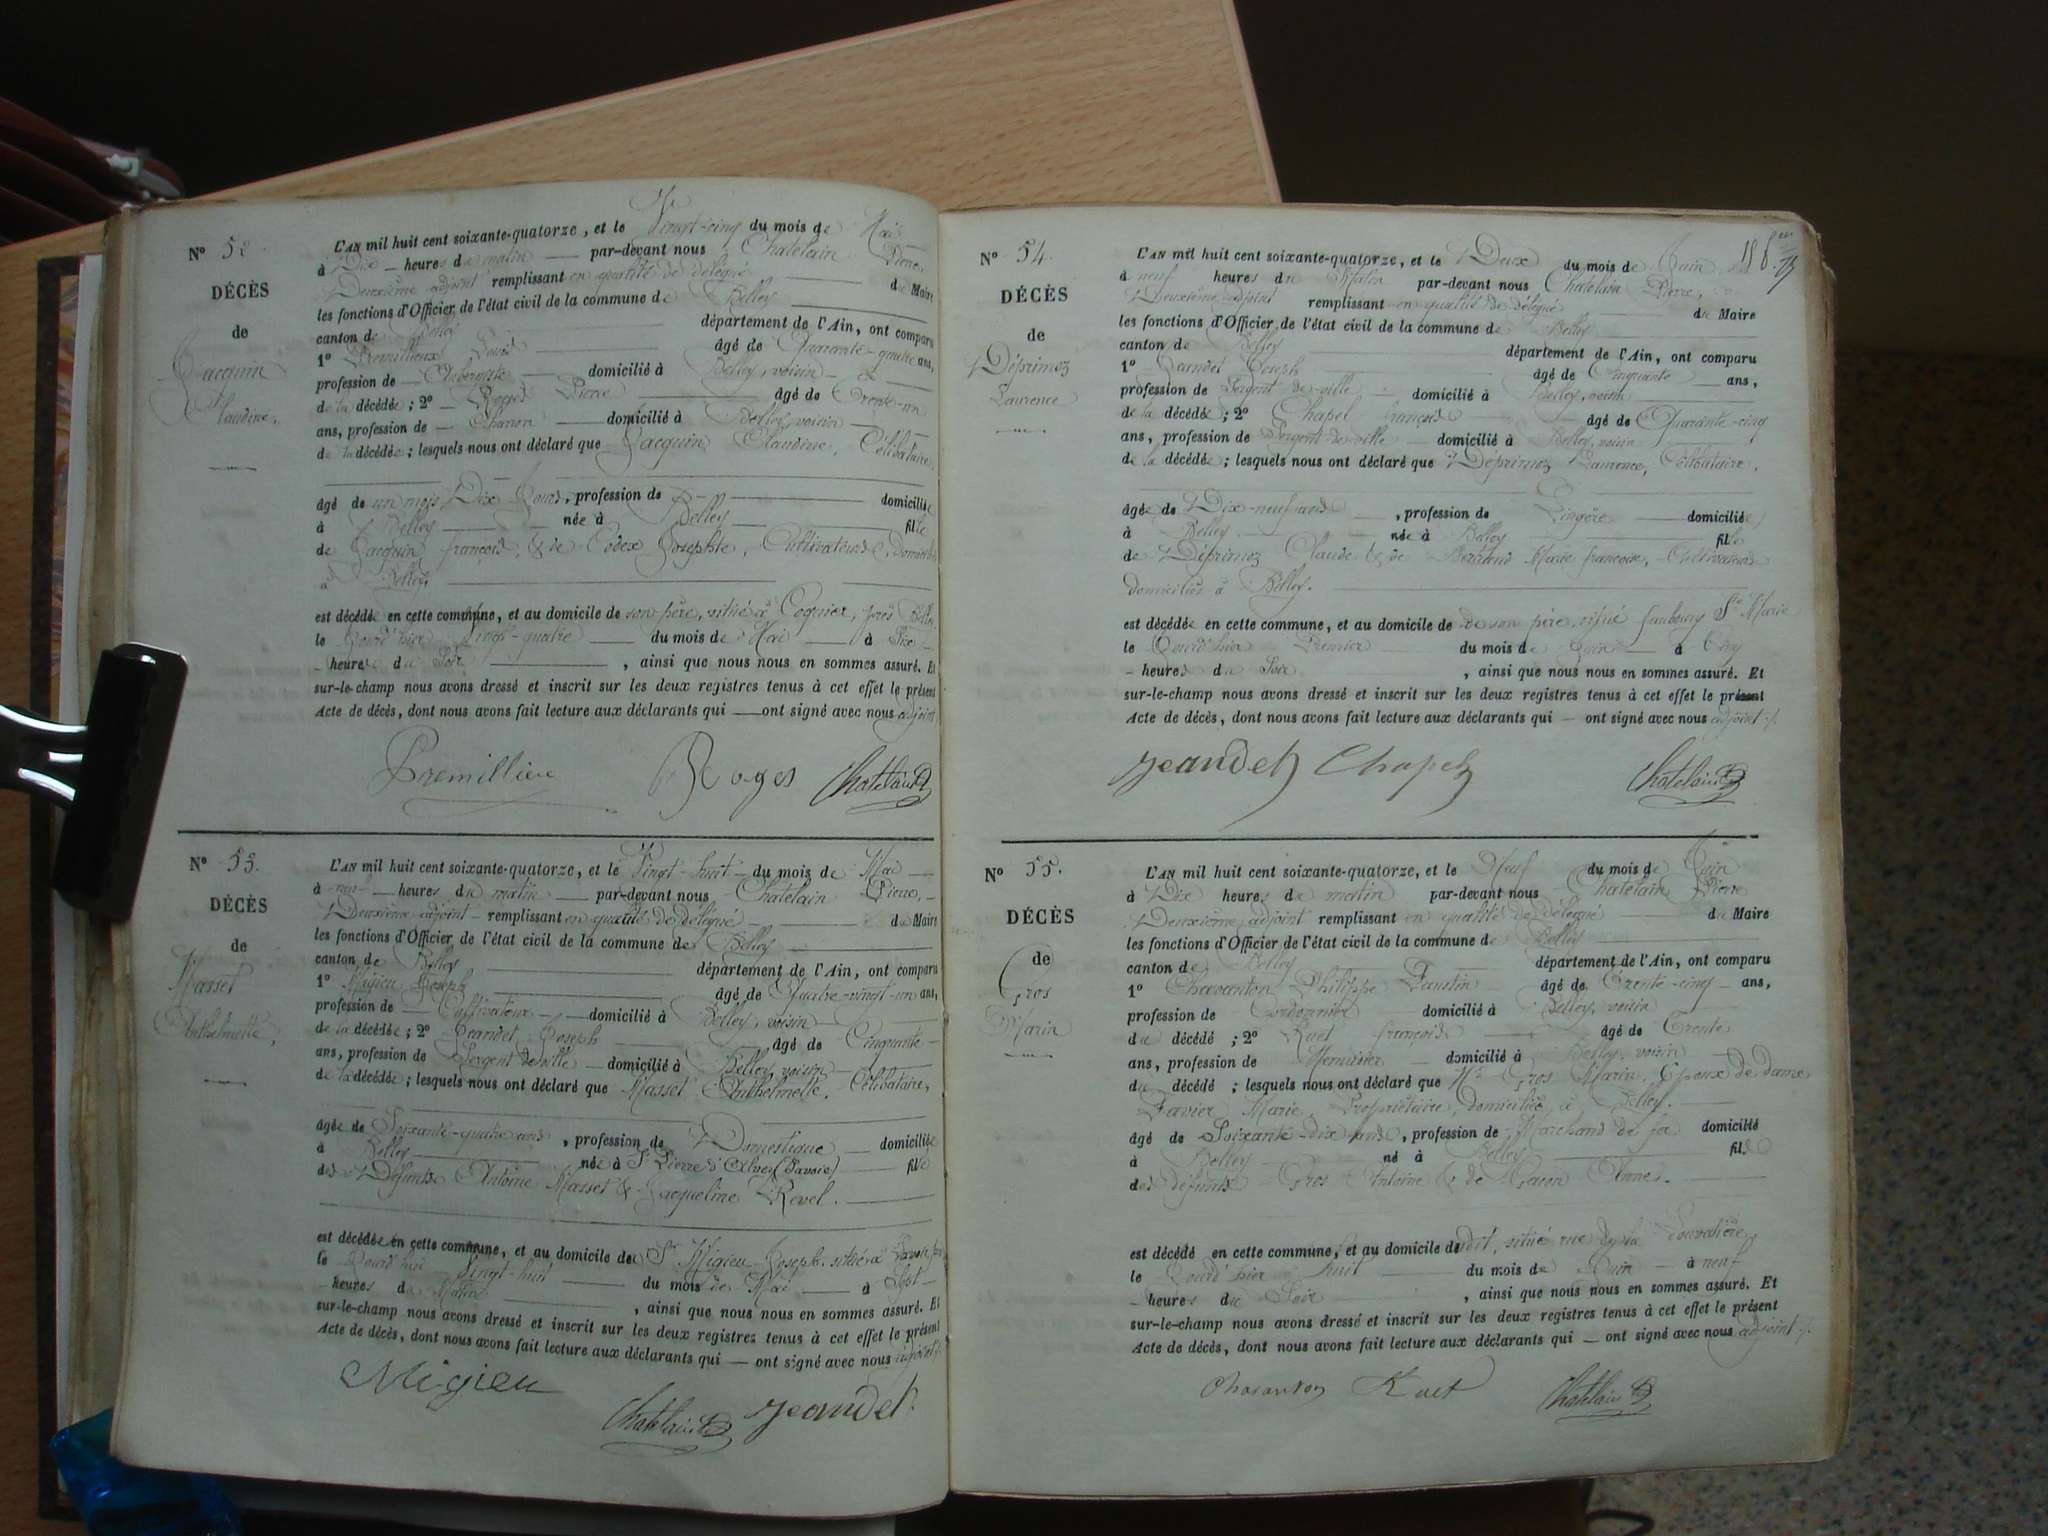 N° 52.
DÉCÈS
de
Jacquin
Claudine.
L'AN mil huit cent soixante-quatorze, et le Vingt-cinq du mois de Mai
à Dix heures du matin par-devant nous Chatelain Pierre,
Deuxième adjoint remplissant en qualité de délégué du Maire
les fonctions d'Officier de l'état civil de la commune de Belley
canton de Belley département de l'Ain, ont comparu
1° Premillieux Louis âgé de Quarante-quatre ans,
profession de Aubergiste domicilié à Belley, voisin
de la décédée ; 2° Pierre âgé de Trente-un
ans, profession de Charron domicilié à Belley, voisin
de la décédée ; lesquels nous ont déclaré que Jacquin Claudine, Célibataire,
âgée de un mois Dix Jours, profession de domiciliée
à Belley née à Belley fille
de Jacquin françois, & de Josephte, Cultivateurs, domiciliés
à Belley,
est décédée en cette commune, et au domicile de son père, situé à Cognier, près Belley,
le jourd'hier Vingt-quatre du mois de Mai à Six
heures du Soir, ainsi que nous nous en sommes assuré. Et
sur-le-champ nous avons dressé et inscrit sur les deux registres tenus à cet effet le présent
Acte de décès, dont nous avons fait lecture aux déclarants qui ont signé avec nous adjoint
Premillieu Roges Chatelain
N° 53.
DÉCÈS
de
Masset
Anthelmette,
L'AN mil huit cent soixante-quatorze, et le Vingt-huit du mois de Mai
à neuf heures du matin par-devant nous Chatelain Pierre,
Deuxième adjoint remplissant en qualité de délégué du Maire
les fonctions d'Officier de l'état civil de la commune de Belley
canton de Belley département de l'Ain, ont comparu
1° Migieu Joseph âgé de Quatre-vingt-un ans,
profession de Cultivateur domicilié à Belley, voisin
de la décédée ; 2° Jeandet Joseph âgé de Cinquante
ans, profession de Sergent de ville domicilié à Belley, voisin
de la décédée ; lesquels nous ont déclaré que Masset Anthelmette, Célibataire,
âgée de Soixante-quatre ans, profession de Domestique domiciliée
à Belley née à St Pierre d'Alvey (Savoie) fille
des Défunts Antoine Masset & Jacqueline Revel.
est décédée en cette commune, et au domicile du Sr Migieu Joseph, situé à
le jourd'hui Vingt-huit du mois de Mai à Sept
heures du Matin, ainsi que nous nous en sommes assuré. Et
sur-le-champ nous avons dressé et inscrit sur les deux registres tenus à cet effet le présent
Acte de décès, dont nous avons fait lecture aux déclarants qui ont signé avec nous adjoint
Migieu Chatelain Jeandet
N° 54.
DÉCÈS
de
Déprimoz
Laurence
L'AN mil huit cent soixante-quatorze, et le Deux du mois de Juin
à neuf heures du Matin par-devant nous Chatelain Pierre,
Deuxième adjoint remplissant en qualité de délégué du Maire
les fonctions d'Officier de l'état civil de la commune de Belley
canton de Belley département de l'Ain, ont comparu
1° Jeandet Joseph âgé de Cinquante ans,
profession de Sergent de ville domicilié à Belley, voisin
de la décédée ; 2° Chapel françois âgé de Quarante-cinq
ans, profession de Sergent de ville domicilié à Belley, voisin
de la décédée ; lesquels nous ont déclaré que Déprimoz Laurence, Célibataire,
âgée de Dix-neuf ans, profession de Lingère domiciliée
à Belley née à Belley fille
de Déprimoz Claude & de Marie françoise, Cultivateurs
domiciliés à Belley.
est décédée en cette commune, et au domicile de de son père, situé faubourg Ste Marie
le jourd'hier Premier du mois de Juin à Cinq
heures du Soir, ainsi que nous nous en sommes assuré. Et
sur-le-champ nous avons dressé et inscrit sur les deux registres tenus à cet effet le présent
Acte de décès, dont nous avons fait lecture aux déclarants qui ont signé avec nous adjoint
Jeandet Chapel Chatelain
N° 55.
DÉCÈS
de
Gros
Marin
L'AN mil huit cent soixante-quatorze, et le Neuf du mois de Juin
à Dix heures du matin par-devant nous Chatelain Pierre
Deuxième adjoint remplissant en qualité de délégué du Maire
les fonctions d'Officier de l'état civil de la commune de Belley
canton de Belley département de l'Ain, ont comparu
1° Chavanton Philippe Faustin âgé de Trente-cinq ans,
profession de Cordonnier domicilié à Belley, voisin
du décédé ; 2° Ruet françois âgé de Trente
ans, profession de Menuisier domicilié à Belley, voisin
du décédé ; lesquels nous ont déclaré que Mr Gros Marin, Epoux de dame
Favier Marie, Propriétaire, domiciliée à Belley.
âgé de Soixante-dix ans, profession de Marchand de domicilié
à Belley né à Belley fils
des défunts Gros Antoine & de Anne.
est décédé en cette commune, et au domicile dudit, situé rue de la
le jourd'hier huit du mois de Juin à neuf
heures du Soir, ainsi que nous nous en sommes assuré. Et
sur-le-champ nous avons dressé et inscrit sur les deux registres tenus à cet effet le présent
Acte de décès, dont nous avons fait lecture aux déclarants qui ont signé avec nous adjoint
Chavanton Ruet Chatelain